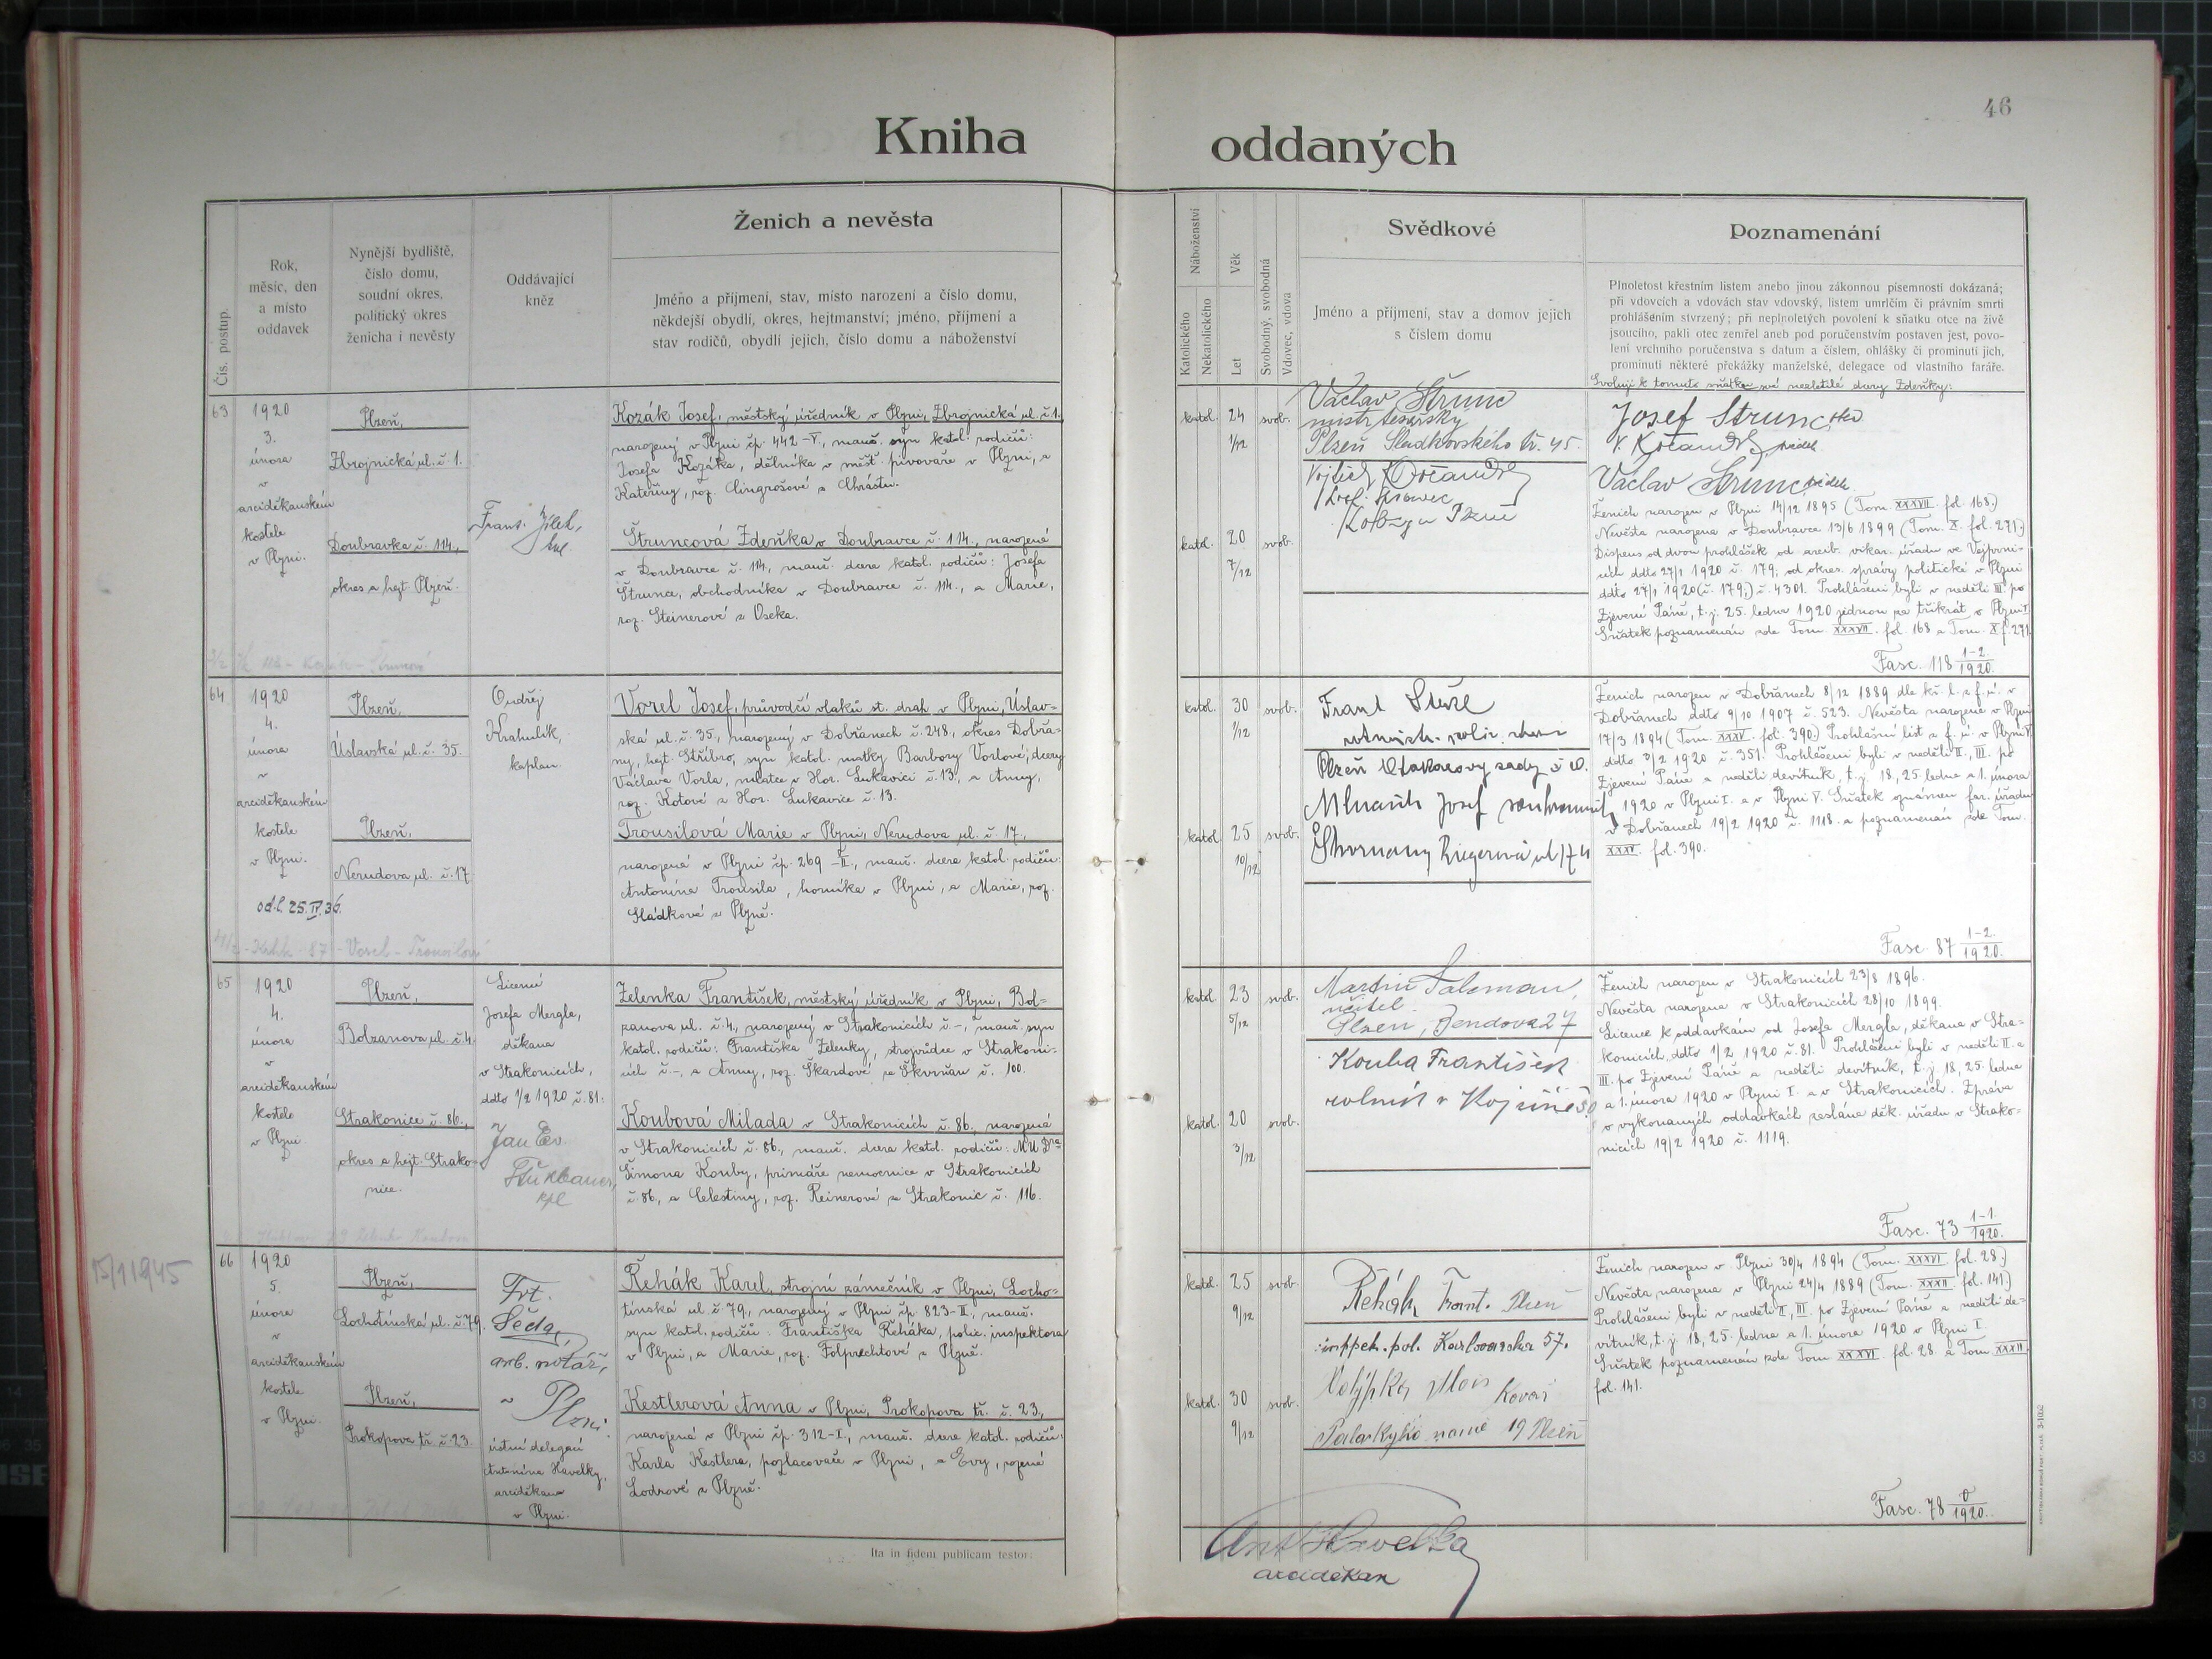 46
Kniha oddaných
Čís. postup.
Rok,
měsíc, den
a místo
oddavek
Nynější bydliště,
číslo domu,
soudní okres,
politický okres
ženicha i nevěsty
Oddávající
kněz
Ženich a nevěsta
Jméno a příjmení, stav, místo narození a číslo domu,
někdejší obydlí, okres, hejtmanství; jméno, příjmení a
stav rodičů, obydlí jejich, číslo domu a náboženství
Náboženství
Katolického
Nekatolického
Věk
Let
Svobodný, svobodná
Vdovec, vdova
Svědkové
Jméno a příjmení, stav a domov jejich
s číslem domu
Poznamenání
Plnoletost křestním listem anebo jinou zákonnou písemností dokázaná;
při vdovcích a vdovách stav vdovský, listem umrlčím či právním smrti
prohlášením stvrzený; při neplnoletých povolení k sňatku otce na živě
jsoucího, pakli otec zemřel aneb pod poručenstvím postaven jest, povo-
lení vrchního poručenstva s datum a číslem, ohlášky či prominutí jich,
prominutí některé překážky manželské, delegace od vlastního faráře.
63
1920
3.
února
v
arciděkanském
kostele
v Plzni.
Plzeň,
Zbrojnická ul. č. 1.
Doubravka č. 114.,
okres a hejt. Plzeň.
Frant. Jílek,
Kozák Josef, městský úředník v Plzni, Zbrojnická ul. č. 1.
narozený v Plzni čp. 442-V., manž. syn katol. rodičů:
Josefa Kozáka, dělníka v měšť. pivovaře v Plzni, a
Kateřiny, roz. Cingrošové z Chrástu.
Štruncová Zdeňka v Doubravce č. 114., narozená
v Doubravce č. 114, manž. dcera katol. rodičů: Josefa
Štrunce, obchodníka v Doubravce č. 114., a Marie,
roz. Steinerové z Oseka.
katol.
24
1/12
svob.
katol.
20
7/12
svob.
Václav Štrunc
mistr tesařský
Plzeň Sladkovského tř. 45.
Vojtěch Kočandrle
Svoluji k tomuto sňatku své nezletilé dcery Zdeňky:
Josef Strunc, otec
V. Kočandrle, svědek
Václav Strunc, svědek.
Ženich narozen v Plzni 14/12 1895 (Tom. XXXVII. fol. 168.)
Nevěsta narozena v Doubravce 13/6 1899 (Tom. X. fol. 271.)
Dispens od dvou prohlášek od arcib. vikar. úřadu ve Vejprni-
cích ddto 27/1 1920 č. 179; od okres. správy politické v Plzni
ddto 27/1 1920 (č. 179,) č. 4301. Prohlášeni byli v neděli III. po
Zjevení Páně, t. j. 25. ledna 1920 jednou za třikrát v Plzni I.
Sňatek poznamenán zde Tom. XXXVII. fol. 168 a Tom. X f. 271.
Fasc. 118 1-2/1920.
64
1920
4.
února
v
arciděkanském
kostele
v Plzni.
Plzeň,
Úslavská ul. č. 35.
Plzeň,
Nerudova ul. č. 17
Ondřej
Krahulík,
kaplan.
Vorel Josef, průvodčí vlaků st. drah v Plzni, Úslav-
ská ul. č. 35., narozený v Dobřanech č. 248., okres Dobřa-
ny, hejt. Stříbro, syn katol. matky Barbory Vorlové, dcery
Václava Vorla, mlatce v Hor. Lukavici č. 13., a Anny,
roz. Kotové z Hor. Lukavice č. 13.
Trousilová Marie v Plzni, Nerudova ul. č. 17.,
narozená v Plzni čp. 269-II., manž. dcera katol. rodičů:
Antonína Trousila, horníka v Plzni, a Marie, roz.
Sládkové z Plzně.
katol.
30
1/12
svob.
katol.
25
10/12
svob.
Plzeň
Josef
Škvrňany, Riegerova ul. 174
Ženich narozen v Dobřanech 8/12 1889 dle kř. l. z f. ú. v
Dobřanech ddto 9/10 1907 č. 523. Nevěsta narozena v Plzni
17/3 1894 (Tom. XXXV. fol. 390.) Prohlašní list z f. ú. v Plzni V.
ddto 3/2 1920 č. 351. Prohlášeni byli v neděli II., III. po
Zjevení Páně a neděli devítník, t. j. 18, 25. ledna a 1. února
1920 v Plzni I. a v Plzni V. Sňatek oznámen far. úřadu
v Dobřanech 19/2 1920 č. 1118. a poznamenán zde Tom.
XXXV. fol. 390.
Fasc. 87 1-2/1920.
65
1920
4.
února
v
arciděkanském
kostele
v Plzni
Plzeň,
Bolzanova ul. č. 4.
Strakonice č. 86.,
okres a hejt. Strako-
nice.
Licencí
Josefa Mergla,
děkana
v Strakonicích,
ddto 1/2 1920 č. 81:
Jan Ev.
kpl
Zelenka František, městský úředník v Plzni, Bol-
zanova ul. č. 4., narozený v Strakonicích č. -, manž. syn
katol. rodičů: Františka Zelenky, strojvůdce v Strakoni-
cích č. -, a Anny, roz. Škardové ze Škvrňan č. 100.
Koubová Milada v Strakonicích č. 86., narozená
v Strakonicích č. 86., manž. dcera katol. rodičů: MUDra
Šimona Kouby, primáře nemocnice v Strakonicích
č. 86., a Celestiny, roz. Reinerové ze Strakonic č. 116.
katol.
23
5/12
svob.
katol.
20
3/12
svob.
Martin Salzman,
učitel
Plzeň, Jendova 27
Kouba František
rolník v
Ženich narozen v Strakonicích 23/8 1896.
Nevěsta narozena v Strakonicích 28/10 1899.
Licence k oddavkám od Josefa Mergla, děkana v Stra-
konicích, ddto 1/2 1920 č. 81. Prohlášeni byli v neděli II. a
III. po Zjevení Páně a neděli devítník, t. j. 18, 25. ledna
a 1. února 1920 v Plzni I. a v Strakonicích. Zpráva
o vykonaných oddavkách zaslána děk. úřadu v Strako-
nicích 19/2 1920 č. 1119.
Fasc. 73 1-1./1920.
66
1920
5.
února
v
arciděkanském
kostele
v Plzni.
Plzeň,
Lochotínská ul. č. 79.
Plzeň,
Prokopova tř. č. 23.
Frt.
Šeda,
arb. notář,
v Plzni.
ústní delegací
Antonína Havelky,
arciděkana
v Plzni.
Řehák Karel, strojní zámečník v Plzni, Locho-
tínská ul. č. 79., narozený v Plzni čp. 823-II., manž.
syn katol. rodičů: Františka Řeháka, polic. inspektora
v Plzni, a Marie, roz. Folprechtové z Plzně.
Kestlerová Anna v Plzni, Prokopova tř. č. 23.,
narozená v Plzni čp. 312-I., manž. dcera katol. rodičů:
Karla Kestlera, pozlacovače v Plzni, a Evy, rozené
Lodrové z Plzně.
katol.
25
9/12
svob.
katol.
30
9/12
svob.
Řehák Frant. Plzeň
inspek. pol. Karlovarská 57.
Alois Kovář
Palackýho námě 19 Plzeň
Ženich narozen v Plzni 30/4 1894 (Tom. XXXVI fol. 28.)
Nevěsta narozena v Plzni 24/4 1889 (Tom. XXXII fol. 141.)
Prohlášeni byli v neděli II., III. po Zjevení Páně a neděli de-
vítník, t. j. 18, 25. ledna a 1. února 1920 v Plzni I.
Sňatek poznamenán zde Tom XXXVI. fol. 28. a Tom. XXXII.
fol. 141.
Fasc. 78 0/1920.
15/1 1945
Ita in fidem publicam testor:
Ant. Havelka
arciděkan